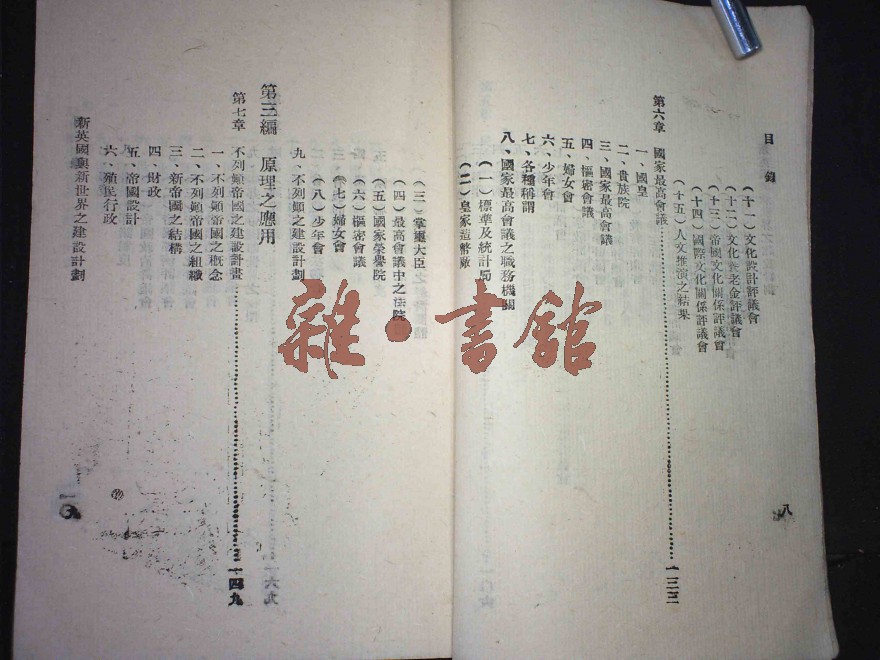 目錄
(十一)文化設計評議會
(十二)文化養老金評議會
(十三)帝國文化關係評議會
(十四)國際文化關係評議會
(十五)人文推演之結果
第六章 國家最高會議…………一三三
一、國皇
二、貴族院
三、國家最高會議
四、樞密會議
五、婦女會
六、少年會
七、各種稱謂
八、國家最高會議之職務機關
(一)標準及統計局
(二)皇家造幣廠
八
(三)掌璽大臣
(四)最高會議中之法院
(五)國家榮譽院
(六)樞密會議
(七)婦女會
(八)少年會
九、不列顛之建設計劃
第三編 原理之應用
第七章 不列顛帝國之建設計畫…………一四九
一、不列顛帝國之概念
二、不列顛帝國之組織
三、新帝國之結構
四、財政
五、帝國設計
六、殖民行政
新英國與新世界之建設計劃
雜·書館